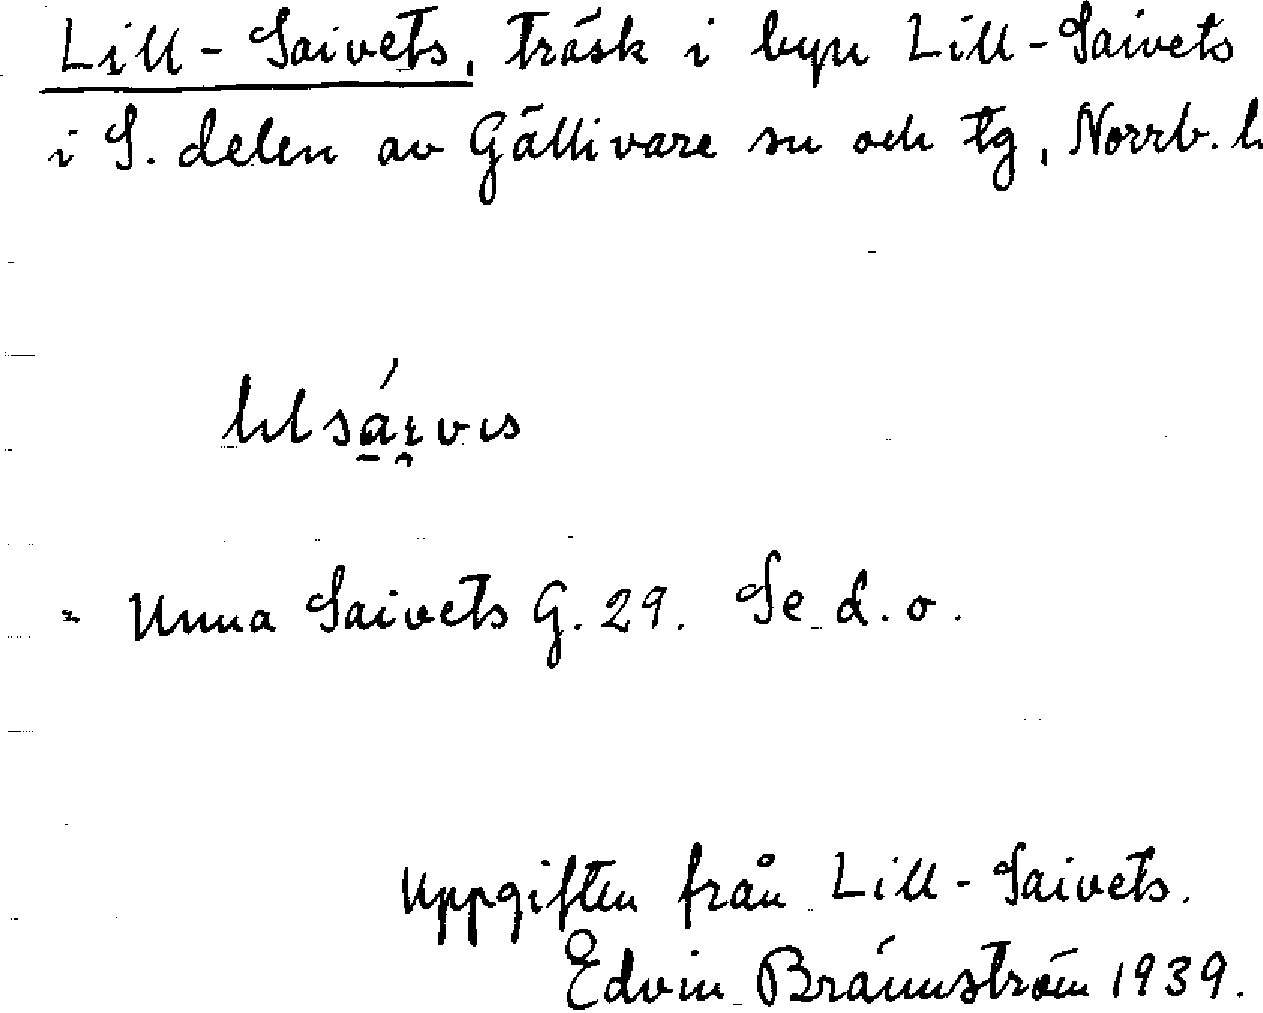 Lill-Saivets, träsk i byn Lill-Saivets
i S. delen av Gällivare sn och tg, Norrb. l.
= Unna Saivets G. 29. Se d. o.
Uppgiften från Lill-Saivets.
Edvin Brännström 1939.